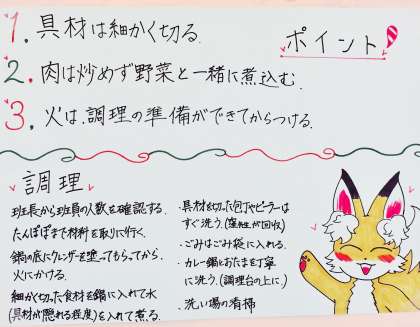 ポイント
1. 具材は細かく切る.
2. 肉は炒めず野菜と一緒に煮込む.
3. 火は、調理の準備ができてからつける.
調理
班長から班員の人数を確認する.
たんぽぽまで材料を取りに行く.
鍋の底にクレンザーを塗ってもらってから、
火にかける.
細かく切った食材を鍋に入れて水
(具材が隠れる程度)を入れて煮る.
・具材を切った包丁やピーラーは
すぐ洗う.(窪先生が回収)
・ごみはごみ袋に入れる.
・カレー鍋とおたまを丁寧
に洗う.(調理台の上に.)
・洗い場の清掃